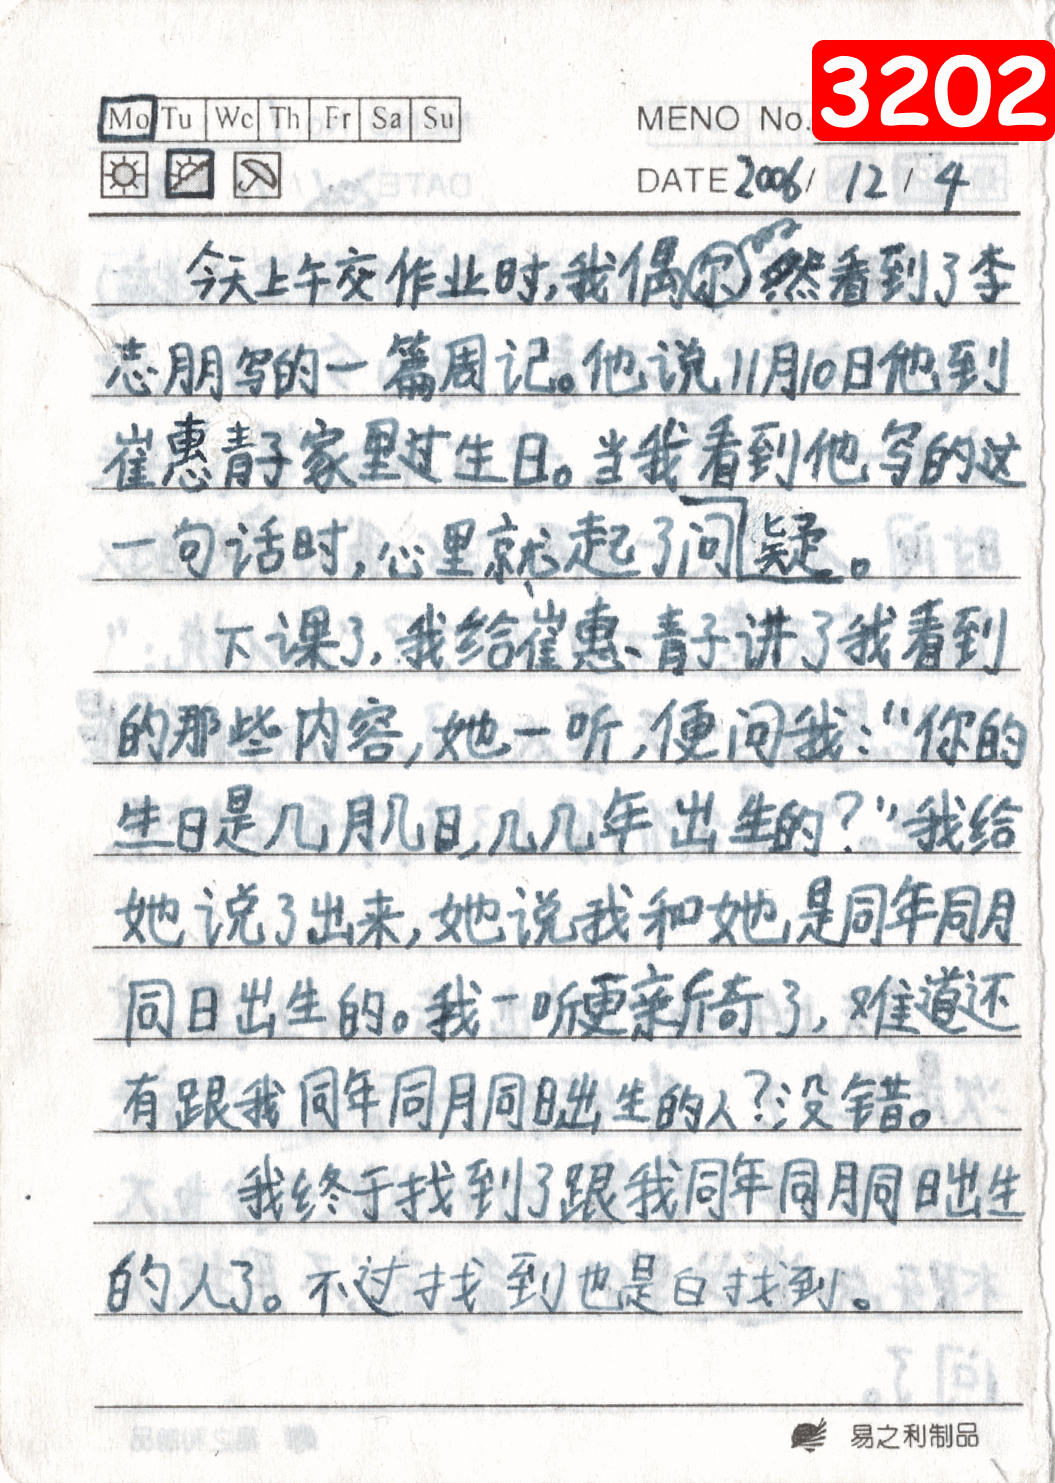 3202
Mo Tu We Th Fr Sa Su
MENO No.
DATE 2006 / 12 / 4
今天上午交作业时,我偶尔然看到了李
志朋写的一篇周记。他说11月10日他到
崔惠青子家里过生日。当我看到他写的这
一句话时,心里就起了问疑。
下课了,我给崔惠青子讲了我看到
的那些内容,她一听,便问我:“你的
生日是几月几日,几几年出生的?”我给
她说了出来,她说我和她是同年同月
同日出生的。我一听更亲新奇了,难道还
有跟我同年同月同日出生的人?没错。
我终于找到了跟我同年同月同日出生
的人了。不过找到也是白找到。
易之利制品